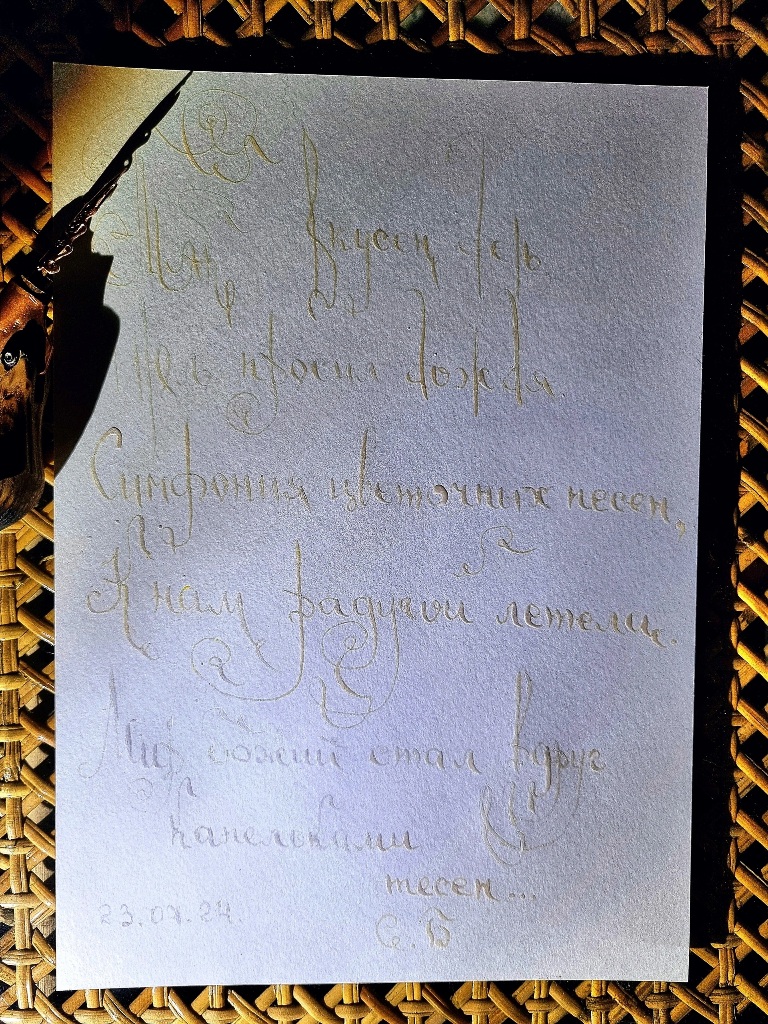 вкусен,
просил дождя.
Симфония цветочних песен,
К нам радугой летели.
Мир божий стал вдруг
капельками
тесен...
23.07.24.
С.Б